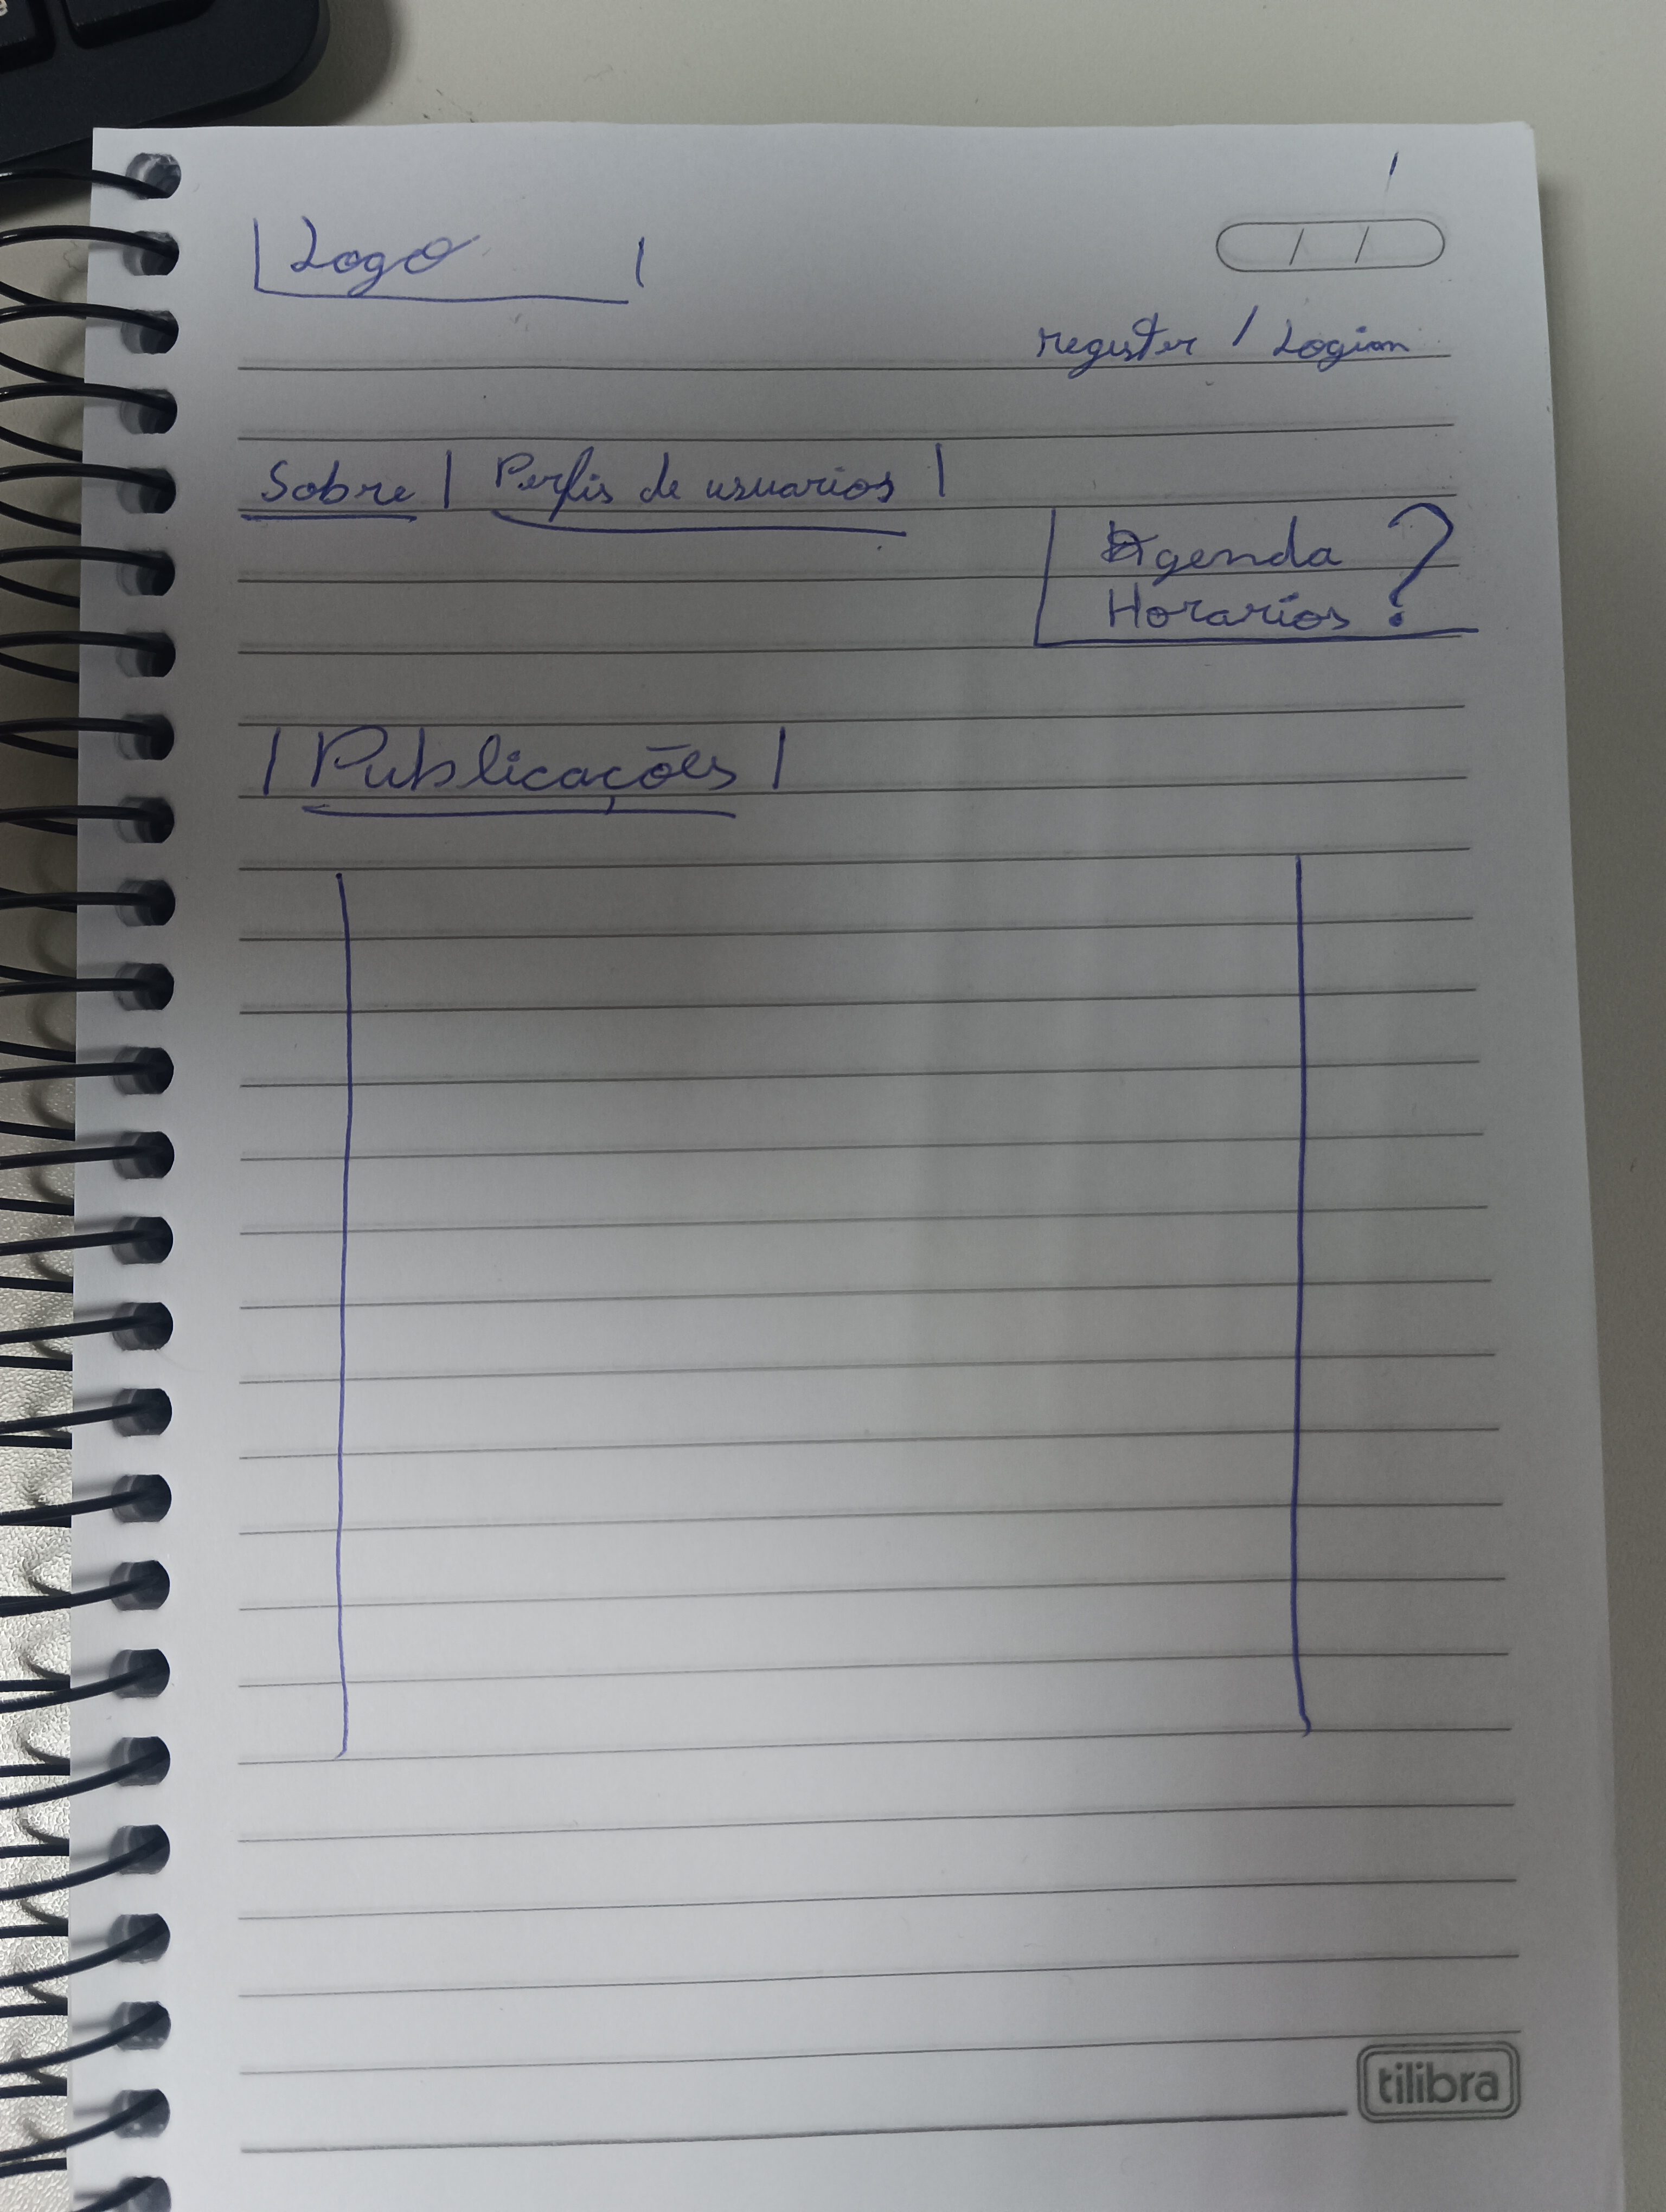 Logo
register / Logion
Sobre | Perfis de usuarios |
Agenda
Horarios ?
| Publicações |
tilibra